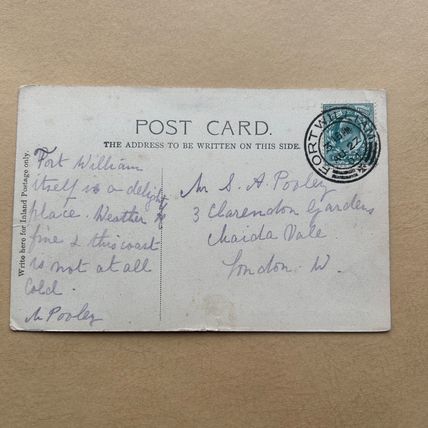 POST CARD.
THE ADDRESS TO BE WRITTEN ON THIS SIDE.
Write here for Inland Postage only.
Fort William
itself is a delight
place. Weather
fine & this coast
is not at all
Cold.
M Pooley
FORT WILLIAM
22
S. A. Pooley
3 Clarendon Gardens
Maida Vale
London. W.